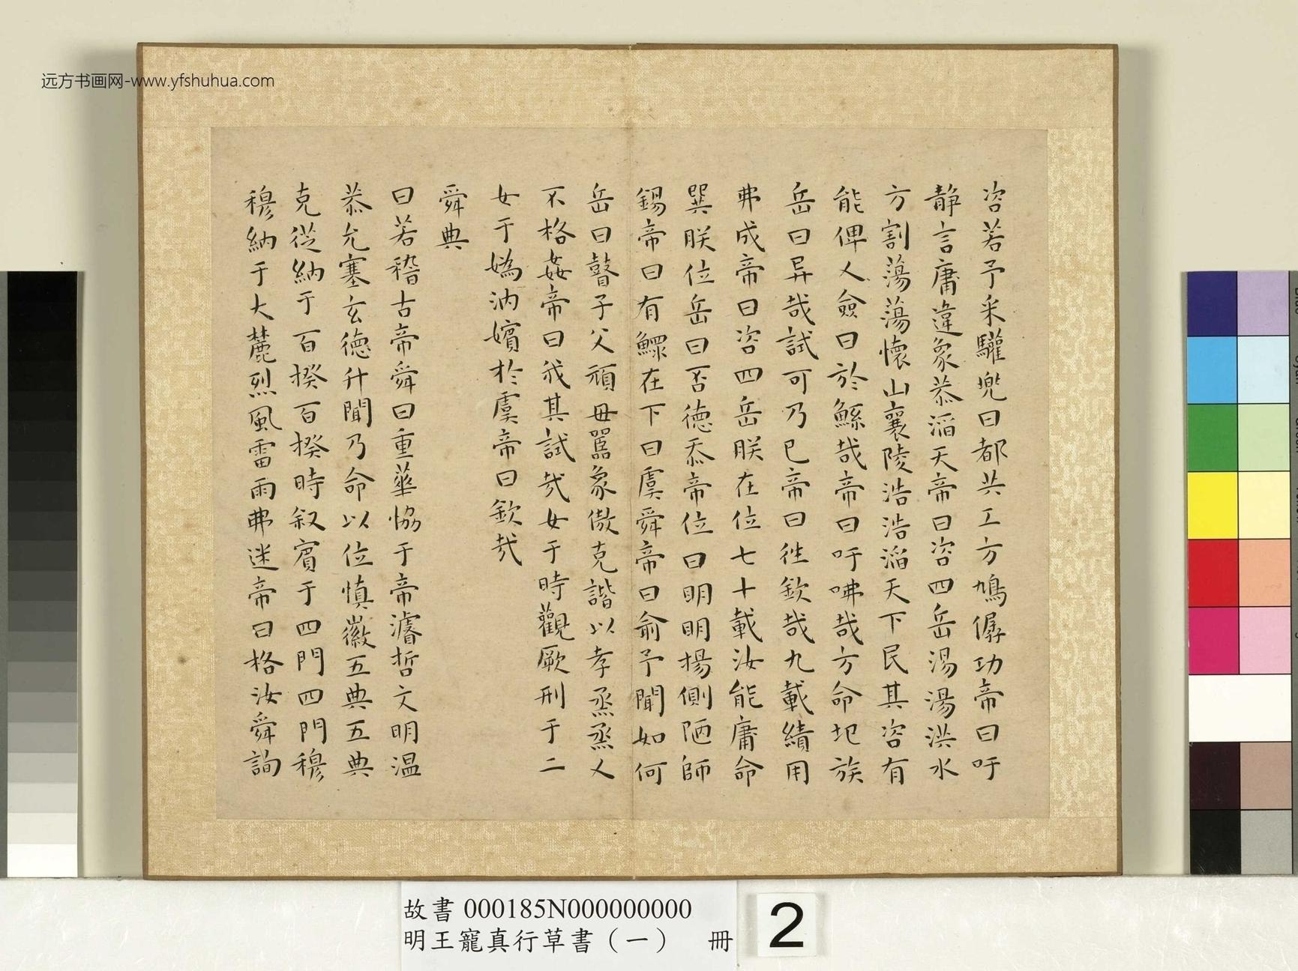 远方书画网-www.yfshuhua.com
咨若予采驩兜曰都共工方鳩僝功帝曰吁
静言庸違象恭滔天帝曰咨四岳湯湯洪水
方割蕩蕩懷山襄陵浩浩滔天下民其咨有
能俾乂僉曰於鯀哉帝曰吁咈哉方命圮族
岳曰异哉試可乃已帝曰往欽哉九載績用
弗成帝曰咨四岳朕在位七十載汝能庸命
巽朕位岳曰否德忝帝位曰明明揚側陋師
錫帝曰有鰥在下曰虞舜帝曰俞予聞如何
岳曰瞽子父頑母嚚象傲克諧以孝烝烝乂
不格姦帝曰我其試哉女于時觀厥刑于二
女于媯汭嬪於虞帝曰欽哉
舜典
曰若稽古帝舜曰重華恊于帝濬哲文明温
恭允塞玄德升聞乃命以位慎徽五典五典
克從納于百揆百揆時叙賓于四門四門穆
穆納于大麓烈風雷雨弗迷帝曰格汝舜詢
故書 000185N000000000
明王寵真行草書（一） 冊
2